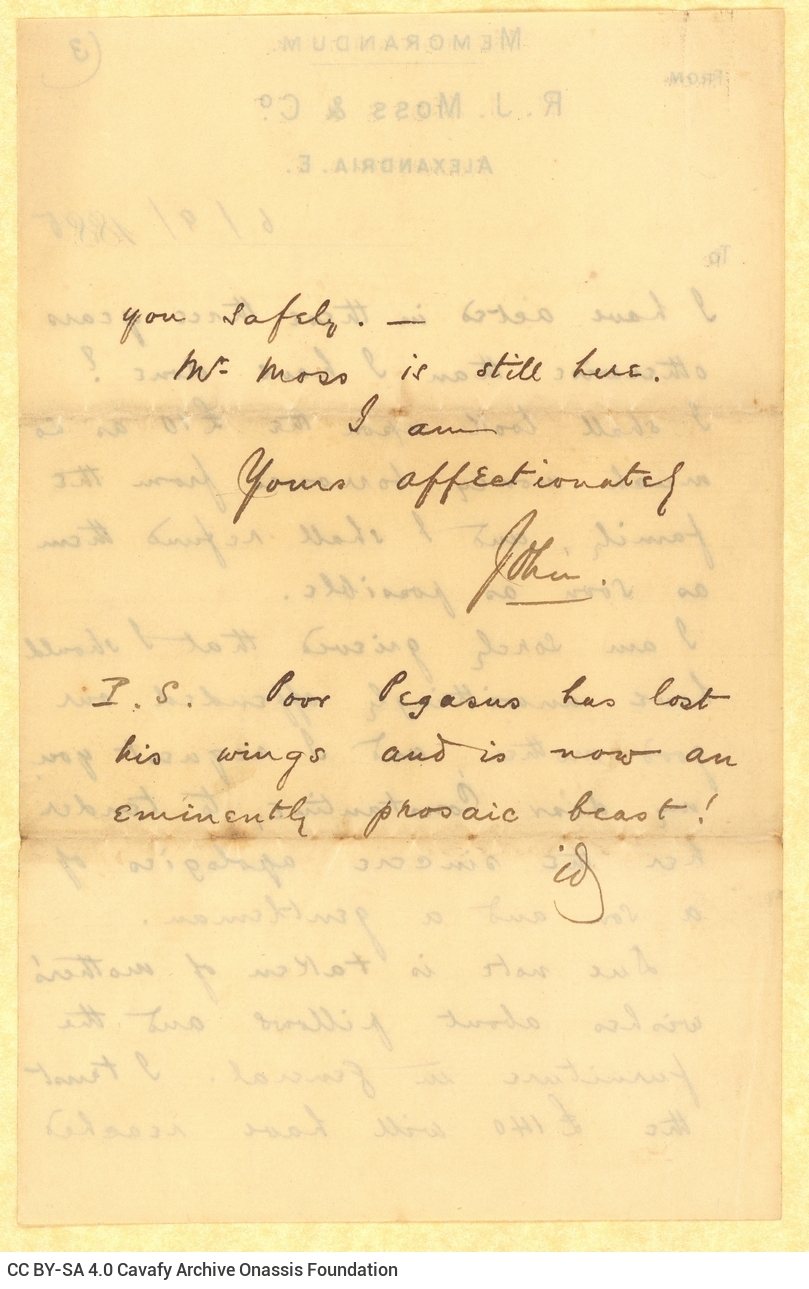 you safely. —
Mr Moss is still here.
I am
Yours affectionately
John.
P. S. Poor Pegasus has lost
his wings and is now an
eminently prosaic beast!
id
CC BY-SA 4.0 Cavafy Archive Onassis Foundation